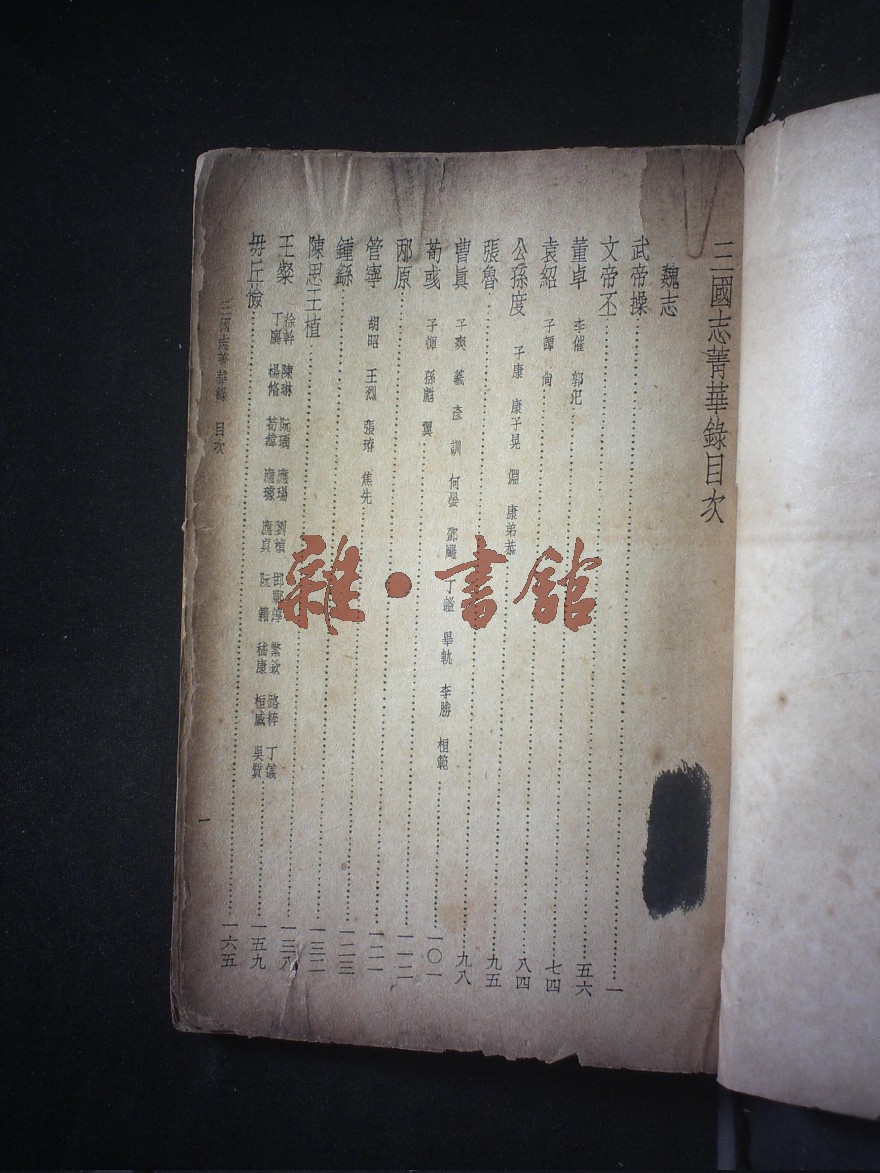 三國志菁華錄目次
魏志
武帝操……一
文帝丕……五六
董卓 李催 郭汜……七四
袁紹 子譚 尚……八四
公孫度 子康 康子晃 淵 康弟恭……九五
張魯……九八
曹眞 子爽 羲 彥 訓 何晏 鄧颺 丁謐 畢軌 李勝 桓範……一〇一
荀彧 子惲 孫彪 翼……一一二
邴原……一二一
管寧 胡昭 王烈 張臶 焦先……一二三
鍾繇……一三二
陳思王植……一三八
王粲 徐幹 陳琳 阮瑀 應瑒 劉楨 邯鄲淳 繁欽 路粹 丁儀 丁廙 楊脩 荀緯 應璩 應貞 阮籍 嵇康 桓威 吳質……一五九
毋丘儉……一六五
三國志菁華錄 目次
一
雜·書館